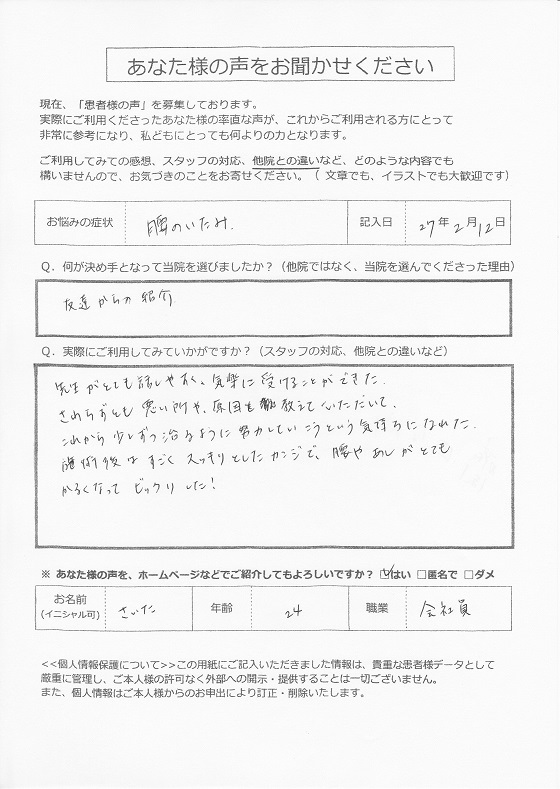 あなた様の声をお聞かせください
現在、「患者様の声」を募集しております。
実際にご利用くださったあなた様の率直な声が、これからご利用される方にとって
非常に参考になり、私どもにとっても何よりの力となります。
ご利用してみての感想、スタッフの対応、他院との違いなど、どのような内容でも
構いませんので、お気づきのことをお寄せください。（ 文章でも、イラストでも大歓迎です）
お悩みの症状 腰のいたみ. 記入日 27年 2月 12日
Q．何が決め手となって当院を選びましたか？（他院ではなく、当院を選んでくださった理由）
友達からの紹介
Q．実際にご利用してみていかがですか？（スタッフの対応、他院との違いなど）
先生がとても話しやすく、気楽に受けることができた.
されるずとも悪い所や、原因も教えていただいて、
これから少しずつ治るように努力していこうという気持ちになれた.
施術後はすごくスッキリとしたカンジで、腰やあしがとても
かるくなってビックリした!
※ あなた様の声を、ホームページなどでご紹介してもよろしいですか？ ☑はい □匿名で □ダメ
お名前 さいた 年齢 24 職業 会社員
(イニシャル可)
<<個人情報保護について>>この用紙にご記入いただきました情報は、貴重な患者様データとして
厳重に管理し、ご本人様の許可なく外部への開示・提供することは一切ございません。
また、個人情報はご本人様からのお申出により訂正・削除いたします。